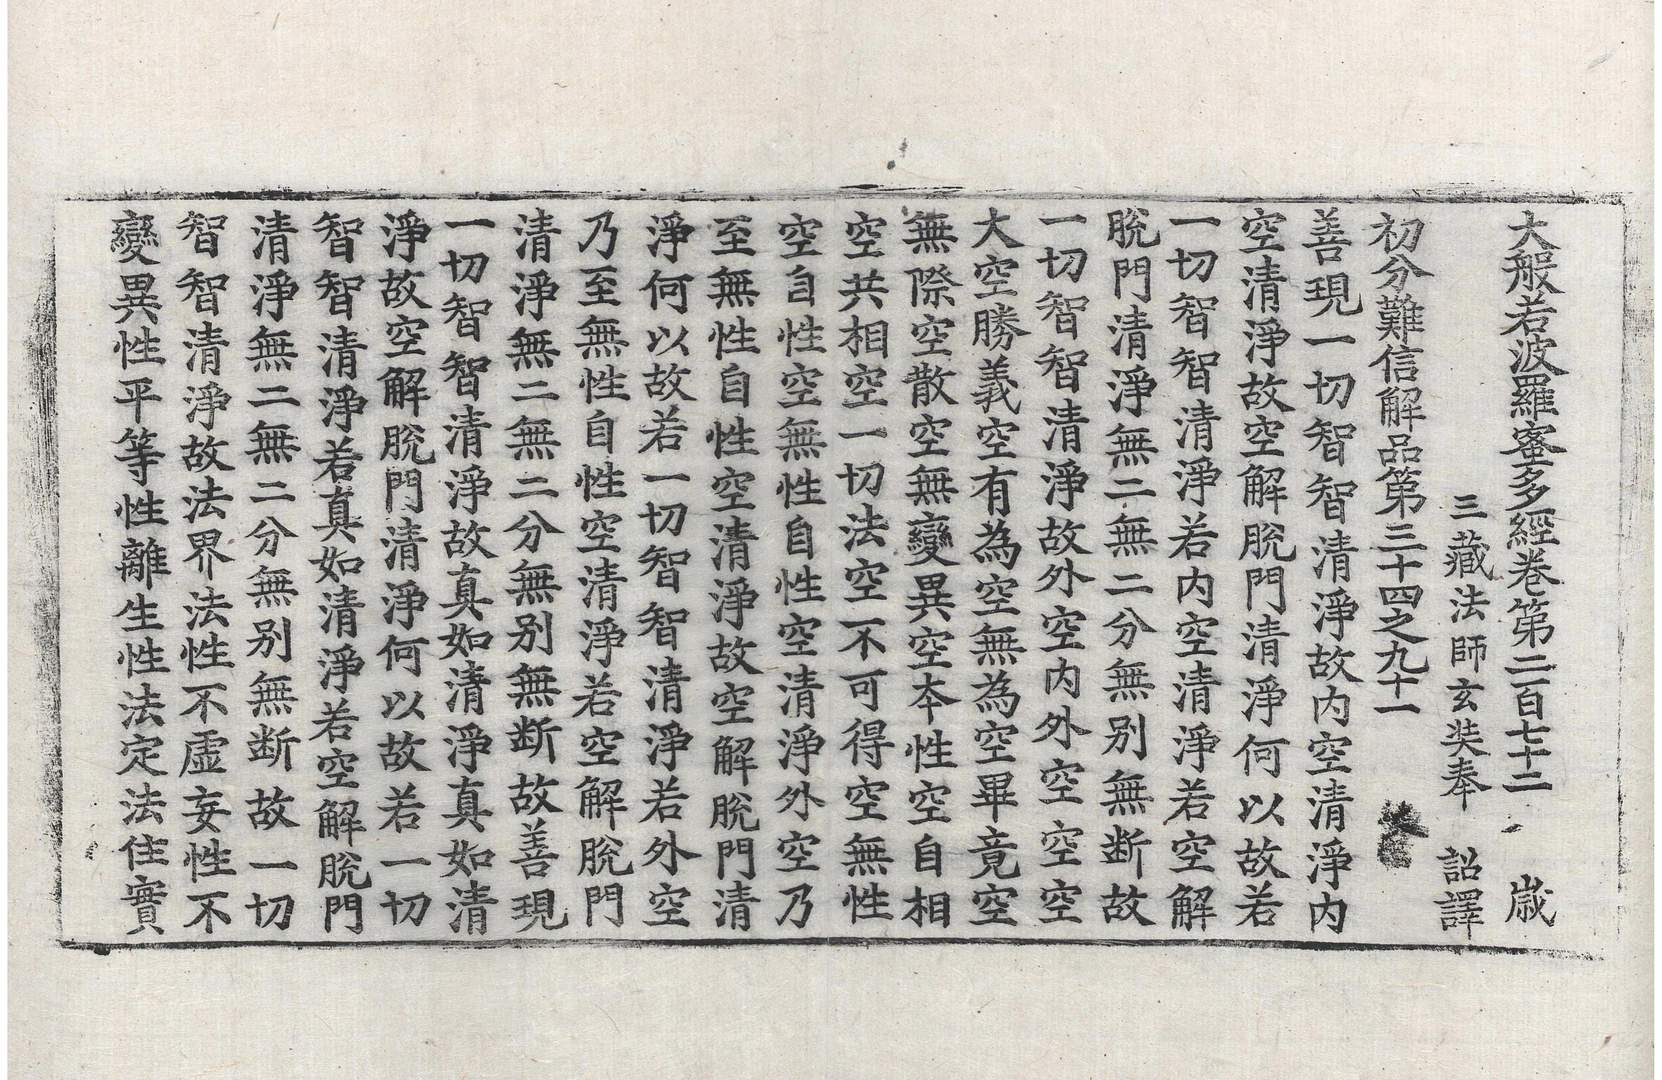 大般若波羅蜜多經卷第二百七十二　歲
三藏法師玄奘奉　詔譯
初分難信解品第三十四之九十一
善現一切智智清淨故内空清淨内
空清淨故空解脫門清淨何以故若
一切智智清淨若内空清淨若空解
脫門清淨無二無二分無别無断故
一切智智清淨故外空内外空空空
大空勝義空有為空無為空畢竟空
無際空散空無變異空夲性空自相
空共相空一切法空不可得空無性
空自性空無性自性空清淨外空乃
至無性自性空清淨故空解脫門清
淨何以故若一切智智清淨若外空
乃至無性自性空清淨若空解脫門
清淨無二無二分無别無断故善現
一切智智清淨故真如清淨真如清
淨故空解脫門清淨何以故若一切
智智清淨若真如清淨若空解脫門
清淨無二無二分無别無断故一切
智智清淨故法界法性不虛妄性不
變異性平等性離生性法定法住實